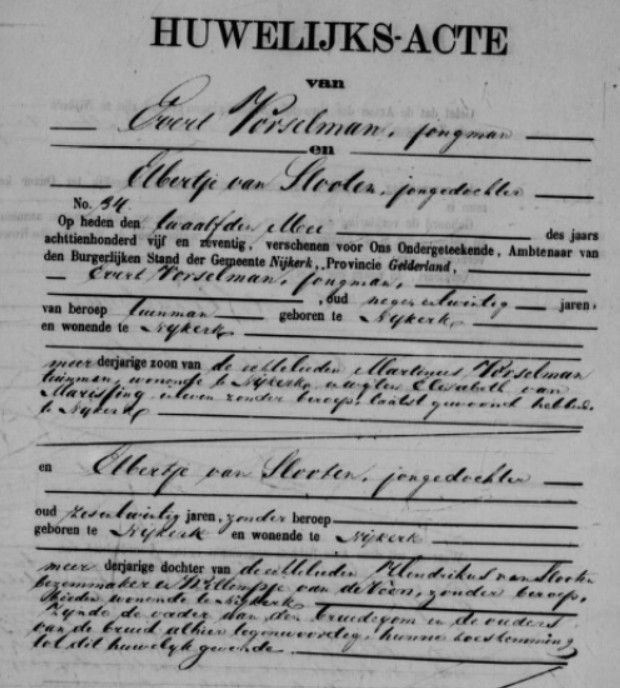 HUWELIJKS-ACTE
van
Evert Vorselman, jongman
en
Elbertje van Slooten, jongedochter
No. 34.
Op heden den twaalfden Mei des jaars
achttienhonderd vijf en zeventig, verschenen voor Ons Ondergeteekende, Ambtenaar van
den Burgerlijken Stand der Gemeente Nijkerk, Provincie Gelderland,
Evert Vorselman, jongman,
, oud negenentwintig jaren,
van beroep tuinman geboren te Nijkerk,
en wonende te Nijkerk
meerderjarige zoon van de echtelieden Martinus Vorselman
tuinman, wonende te Nijkerk, en wijlen Elisabeth van
in leven zonder beroep, laatst gewoond hebbende
te Nijkerk
en Elbertje van Slooten, jongedochter
oud zesentwintig jaren, zonder beroep
geboren te Nijkerk en wonende te Nijkerk
meerderjarige dochter van de echtelieden Hendrikus van Slooten
bezemmaker en Willempje van de zonder beroep,
beiden wonende te Nijkerk
Zijnde de vader van den bruidegom en de ouders
van de bruid alhier tegenwoordig, hunne toestemming
tot dit huwelijk gevende